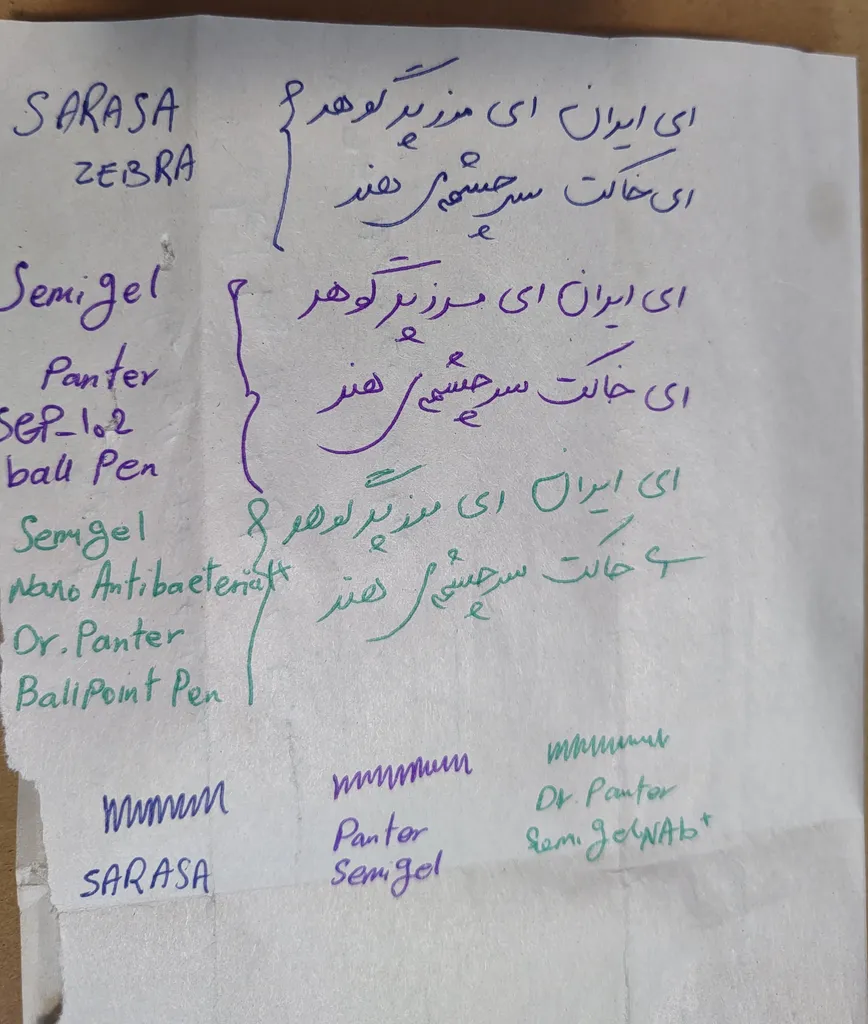 SARASA
ZEBRA
ای ایران ای مرز پر گوهر
ای خاکت سرچشمه‌ی هنر
Semigel
Panter
SGP_1.2
ball Pen
ای ایران ای مرز پر گوهر
ای خاکت سرچشمه‌ی هنر
Semigel
Nano Antibacterial+
Dr. Panter
BallPoint Pen
ای ایران ای مرز پر گوهر
ای خاکت سرچشمه‌ی هنر
SARASA
Panter
Semigel
Dr. Panter
Semi gel NAb+